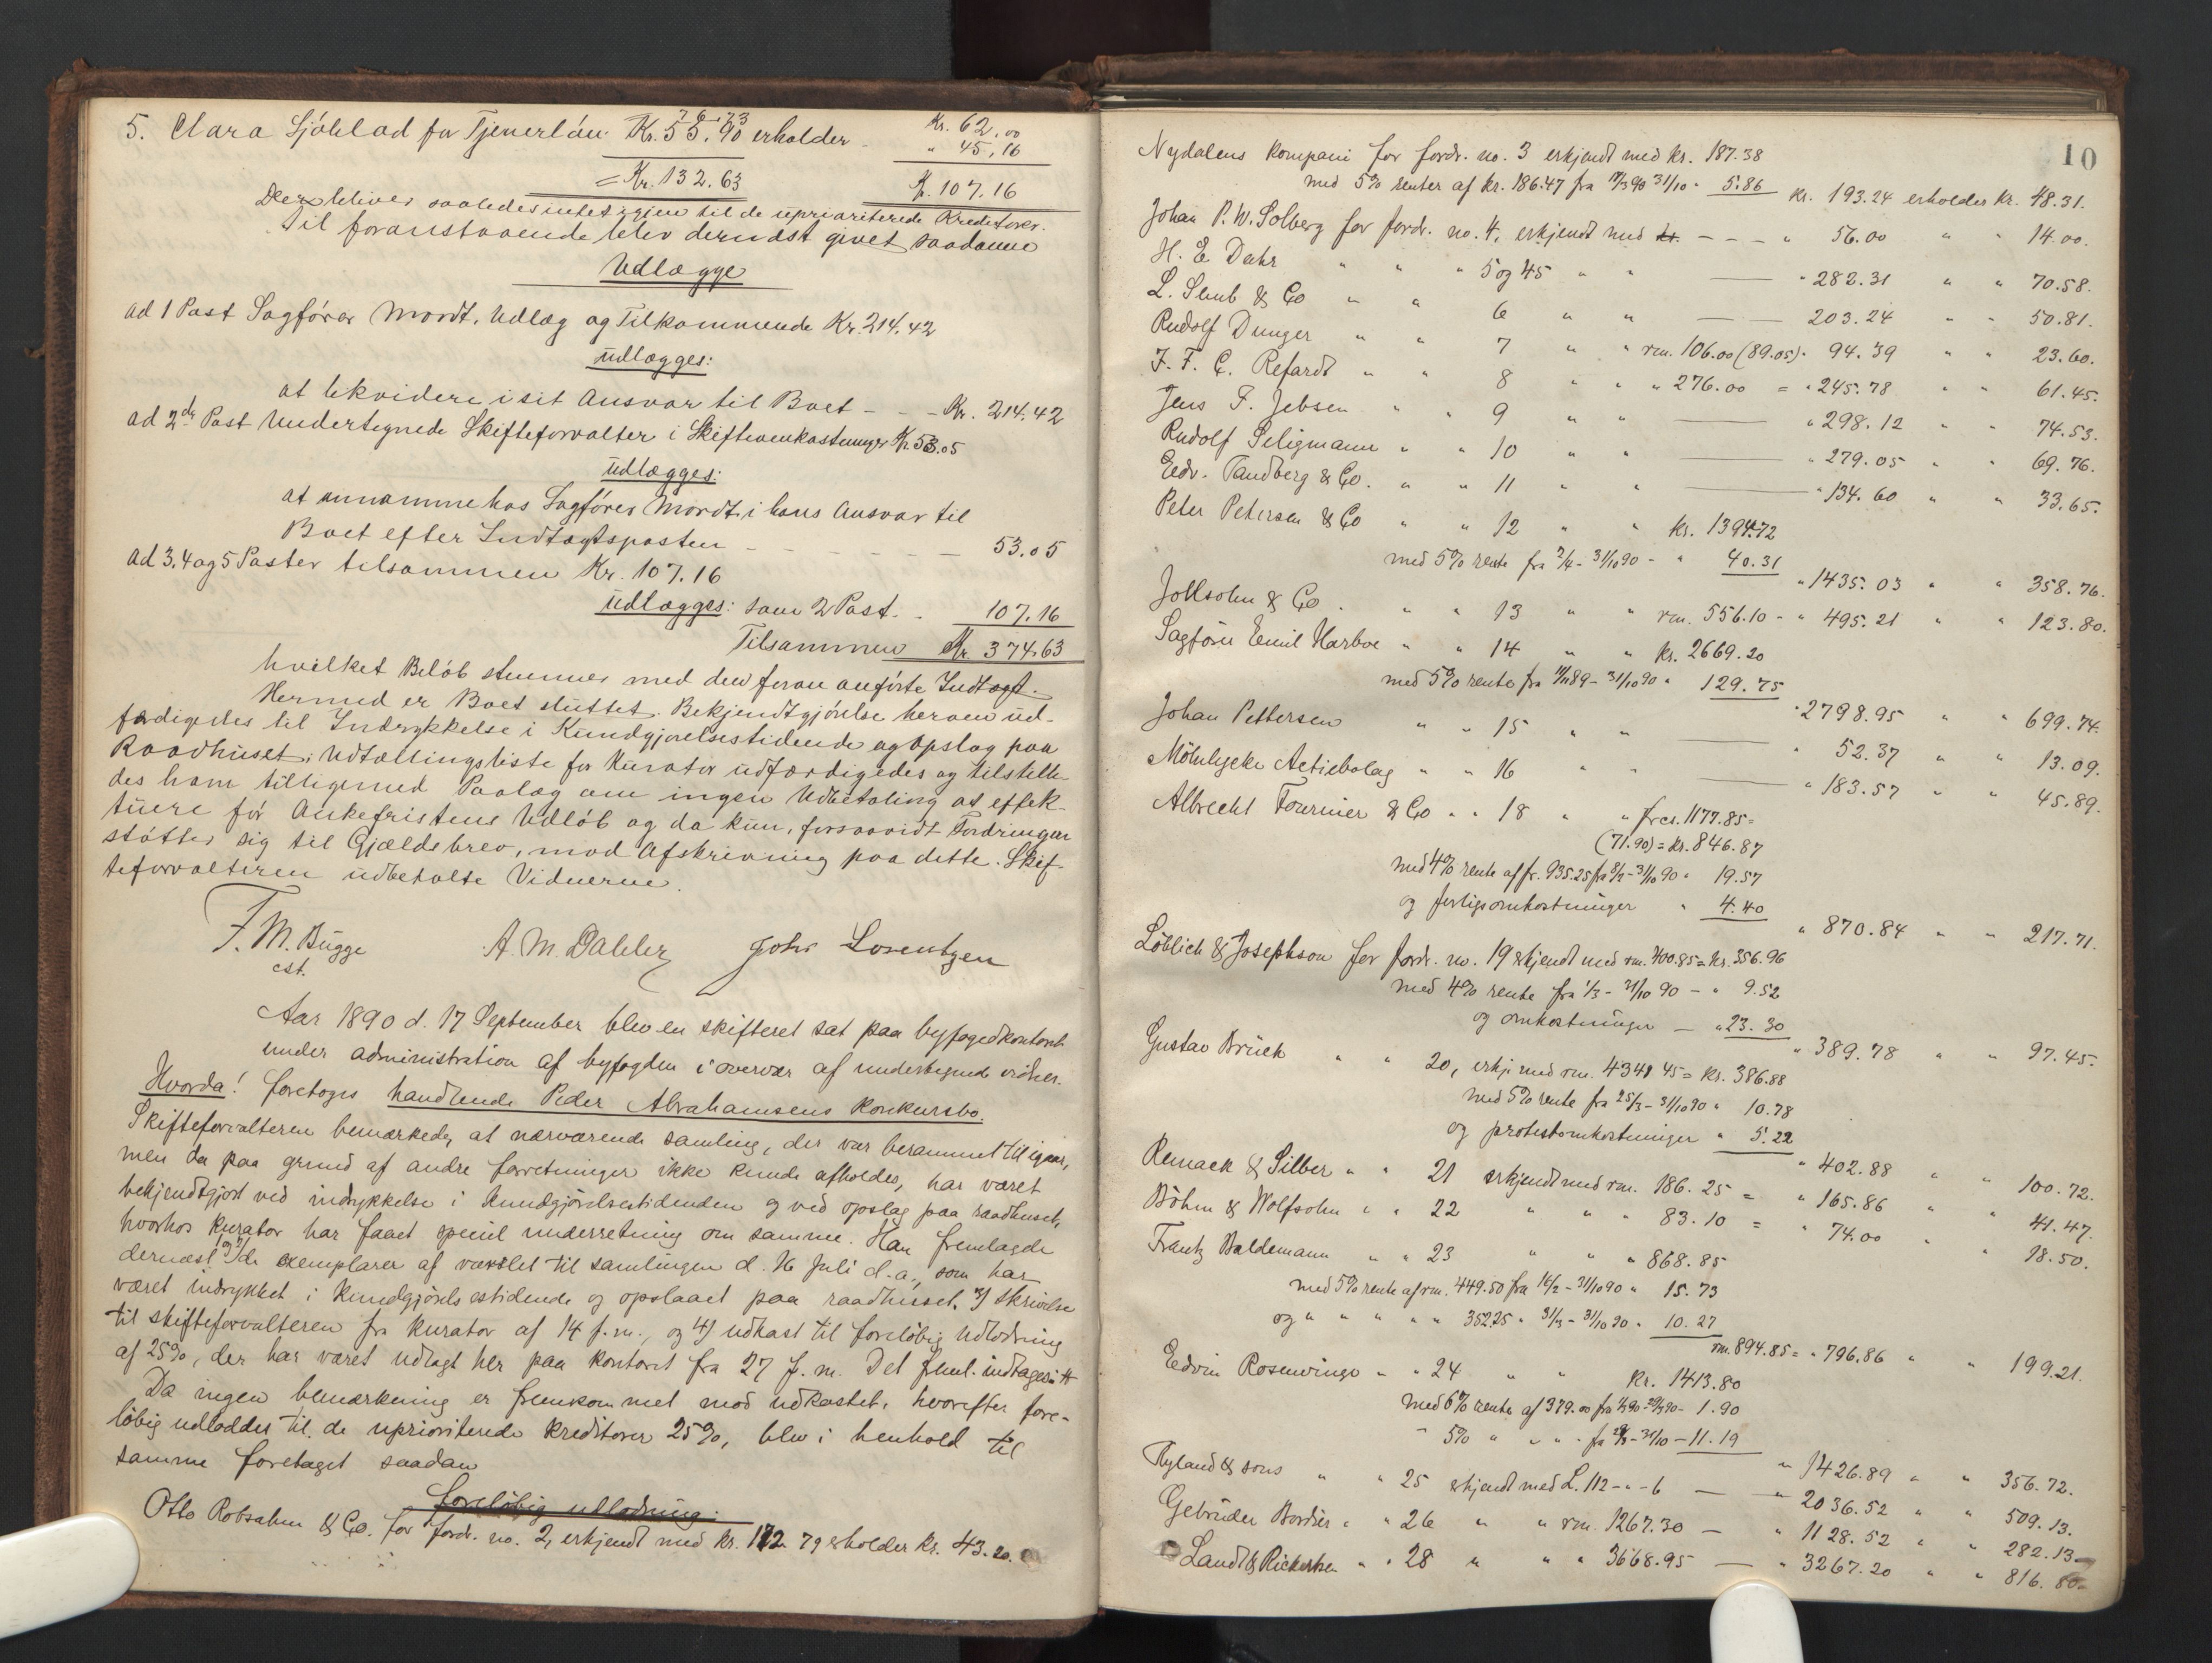 5. Clara Sjöblad for Tjenerlön Kr. 55.90 erholder Kr. 62.00
76.73
" 45,16
= Kr. 132.63 Kr. 107.16
Der bliver saaledes intet igjen til de uprioriterede Kreditorer.
Til foranstaaende blev dernæst givet saadanne
Udlægge
ad 1 Post Sagförer Mordt, Udlæg og Tilkommende Kr. 214.42
udlægges:
at likvidere i sit Ansvar til Boet - - - Kr. 214.42
ad 2den Post Undertegnede Skifteforvalter i Skifteomkostninger Kr. 53.05
udlægges:
at annamme hos Sagförer Mordt i hans Ansvar til
Boet efter Indtægtsposten - - - - - - 53.05
ad 3.4 og 5 Poster tilsammen Kr. 107.16
udlægges: som 2 Post. . 107.16
Tilsammen Kr. 374.63
hvilket Belöb stemmer med den foran anförte Indtægt.
Hermed er Boet sluttet. Bekjendtgjörelse herom ud-
færdigedes til Indrykkelse i Kundgjörelsestidende og Opslag paa
Raadhuset; Udtællingsliste for Kurator udfærdigedes og tilstille-
des ham tilligemed Paalæg om ingen Udbetaling at effek-
tuere för Ankefristens Udlöb og da kun, forsaavidt Fordringen
stötter sig til Gjældsbrev, mod Afskrivning paa dette. Skif-
teforvalteren udbetalte Vidnerne.
F. M. Bugge A. M. Dahler Johs Lorentzen
cst.
Aar 1890 d. 17 September blev en skifteret sat paa byfogedkontoret
under administration af byfogden i overvær af undertegnede vidner.
Hvorda! foretoges handlende Peder Abrahamsens konkursbo.
Skifteforvalteren bemærkede, at nærværende samling, der var berammet til igaar,
men da paa grund af andre forretninger ikke kunde afholdes, har været
bekjendtgjort ved indrykkelse i kundgjörelsestidenden og ved opslag paa raadhuset,
hvorhos kurator har faaet speciel underretning om samme. Han fremlagde
dernæst 1) og 2) de exemplarer af varslet til samlingen d. 16 Juli d. a., som har
været indrykket i kundgjörelsestidende og opslaaet paa raadhuset. 3) skrivelse
til skifteforvalteren fra kurator af 14 f. m., og 4) udkast til foreløbig udlodning
af 25%, der har været udlagt her paa kontoret fra 27 f. m. Det freml. indtages itt
Da ingen bemærkning er fremkommet mod udkastet, hvorefter fore-
löbig udloddes til de uprioriterede kreditorer 25%, blev i henhold til
samme foretaget saadan
foreløbig udlodning:
Otto Robsahm & Co. for fordr. no. 2, erkjendt med kr. 172.79 erholder kr. 43.20.
10
Nydalens Kompani for fordr. no. 3 erkjendt med kr. 187.38
med 5% renter af kr. 186.47 fra 17/3 90 31/10 " 5.86 kr. 193.24 erholder kr. 48.31.
Johan P. W. Solberg for fordr. no. 4, erkjendt med kr. - - - " 56.00 " " 14.00.
H. E. Dahr " " " 5 og 45 " " — " 282.31 " " 70.58.
L. Stub & Co " " 6 " " — — 203.24 " " 50.81.
Rudolf Dunger " " 7 " " rm. 106.00 (89.05) " 94.39 " " 23.60.
F. F. C. Refardt " " 8 " " " 276.00 = " 245.78 " " 61.45.
Jens F. Jebsen " " 9 " " — " 298.12 " " 74.53.
Rudolf Seligmann " " 10 " " — " 279.05 " " 69.76.
Edv. Tandberg & Co. " " 11 " " — " 134.60 " " 33.65.
Peter Petersen & Co " " 12 " " kr. 1394.72
med 5% rente fra 2/4 - 31/10 90 - " 40.31
" 1435.03 " " 358.76.
Jollsohn & Co. " " 13 " " rm. 556.10 - " 495.21 " " 123.80.
Sagförer Emil Harboe " " 14 " " kr. 2669.20
med 5% rente fra 11/11 89 - 31/10 90 " 129.75
" 2798.95 " " 699.74.
Johan Pettersen " " 15 " " — " 52.37 " " 13.09.
Mölnlycke Actiebolag " " 16 " " — " 183.57 " " 45.89.
Albrecht Fournier & Co " " 18 " " frcs. 1177.85 =
(71.90) = kr. 846.87
med 4% rente af fr. 935.25 fra - 31/10 90 " 19.57
og omkostninger " 4.40
" 870.84 " " 217.71.
Löblich & Josephson for fordr. no. 19 erkjendt med rm. 400.85 = kr. 356.96
med 4% rente fra 1/3 - 31/10 90 - " 9.52
og omkostninger — " 23.30
" 389.78 " " 97.45.
Gustav Brück " " 20, erkj. med rm. 434 45 = kr. 386.88
med 5% rente fra 25/3 - 31/10 90 " 10.78
og protestomkostninger " 5.22
" 402.88 " " 100.72.
Remack & Silber " " 21 erkjendt med rm. 186.25 = " 165.86 " " 41.47.
Böhm & Wolfsohn " " 22 " " " 83.10 = " 74.00 " " 18.50.
Frantz Baldemann " " 23 " " " 868.85
med 5% rente af rm. 449.50 fra 16/2 - 31/10 90 " 15.73
og " " " " " 352.25 " 31/3 - 31/10 90 " 10.27
rm. 894.85 = " 796.86 " " 199.21.
Edvin Rosenvinge " " 24 " " kr. 1413.80
med 6% rente af 379.00 fra - 1.90
" 5% " " " " fra - 31/10 - 11.19
" 1426.89 " " 356.72.
Ryland & Sons " " 25 erkjendt med L. 112 - " - 6 — " 2036.52 " " 509.13.
Gebrüder Bordier " " 26 " " rm. 1267.30 — " 1128.52 " " 282.13.
Landt & Rickertsen " " 28 " " " 3668.95 — " 3267.20 " " 816.80.